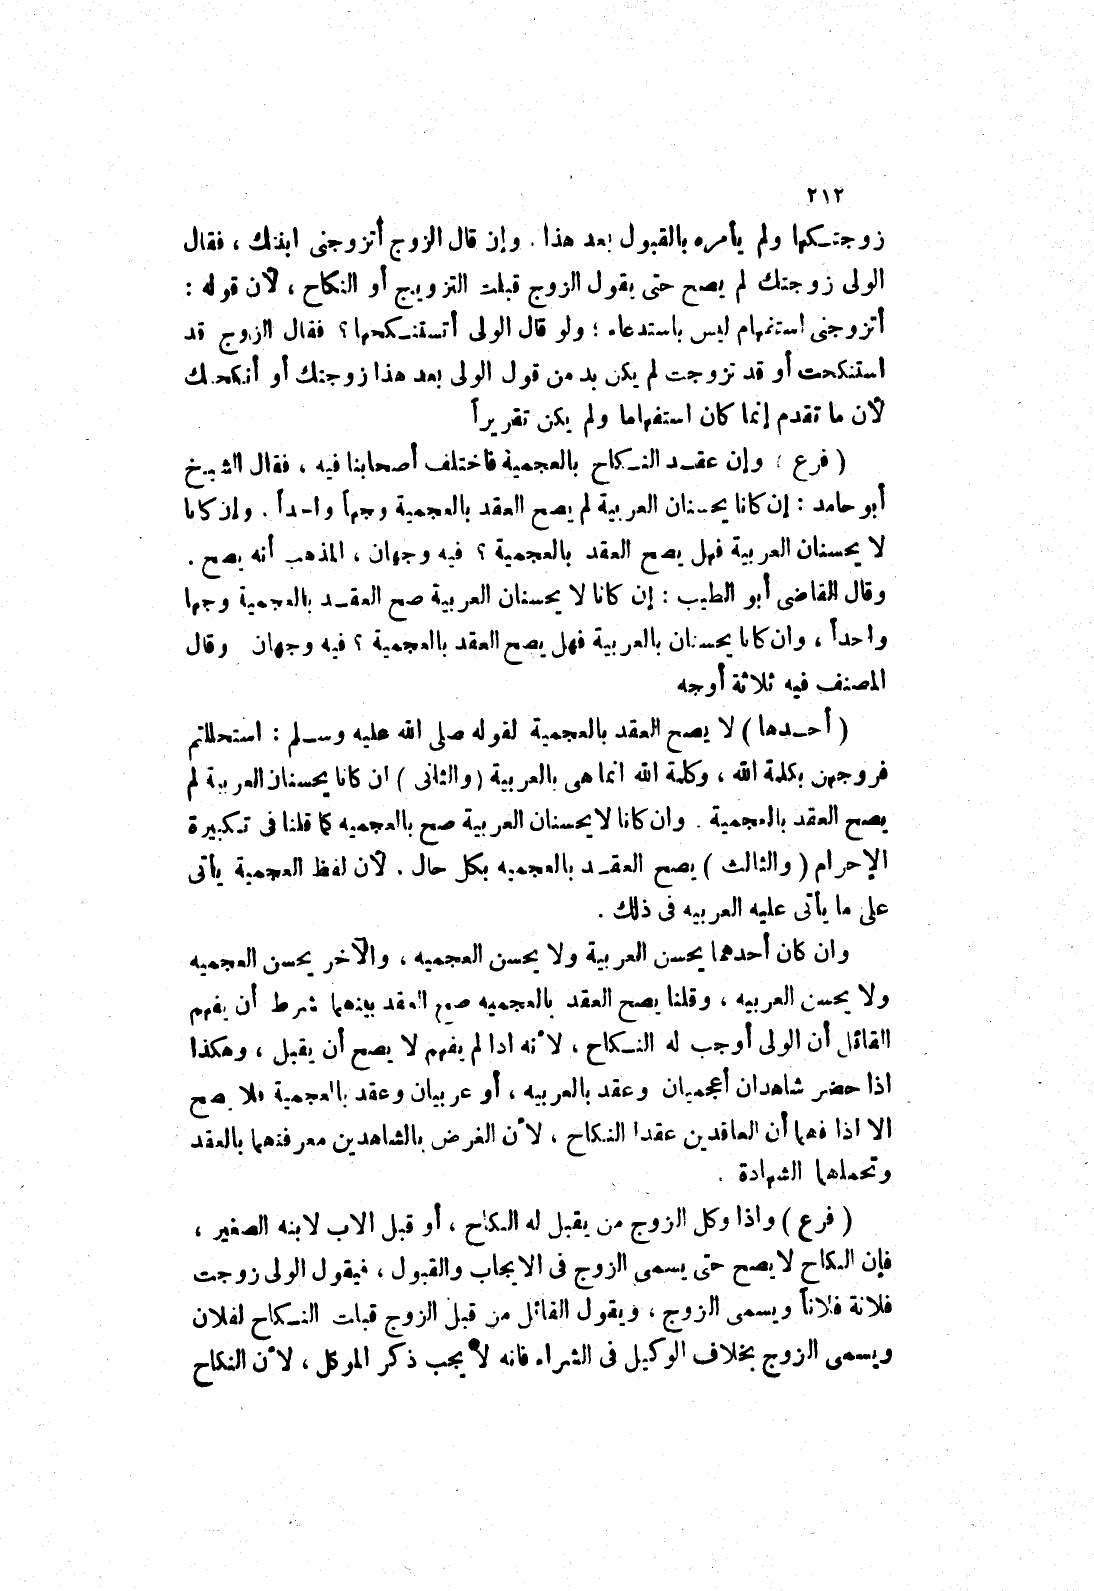 ٢١٢
زوجتكها ولم يأمره بالقبول بعد هذا . وإن قال الزوج أتزوجنى ابنتك ، فقال
الولى زوجتك لم يصح حتى يقول الزوج قبلت التزويج أو النكاح ، لأن قوله :
أتزوجنى استفهام ليس باستدعاء ؛ ولو قال الولى أتستنكحها ؟ فقال الزوج قد
استنكحت أو قد تزوجت لم يكن بد من قول الولى بعد هذا زوجتك أو أنكحتك
لأن ما تقدم إنما كان استفهاما ولم يكن تقريراً
( فرع ) وإن عقد النكاح بالعجمية فاختلف أصحابنا فيه ، فقال الشيخ
أبو حامد : إن كانا يحسنان العربية لم يصح العقد بالعجمية وجهاً واحداً . وإن كانا
لا يحسنان العربية فهل يصح العقد بالعجمية ؟ فيه وجهان ، المذهب أنه يصح .
وقال القاضى أبو الطيب : إن كانا لا يحسنان العربية صح العقد بالعجمية وجها
واحداً ، وان كانا يحسنان بالعربية فهل يصح العقد بالعجمية ؟ فيه وجهان وقال
المصنف فيه ثلاثة أوجه
( أحدها ) لا يصح العقد بالعجمية لقوله صلى الله عليه وسلم : استحللتم
فروجهن بكلمة الله ، وكلمة الله انما هى بالعربية ( والثانى ) ان كانا يحسنان العربية لم
يصح العقد بالعجمية . وان كانا لا يحسنان العربية صح بالعجميه كما قلنا فى تكبيرة
الإحرام ( والثالث ) يصح العقد بالعجميه بكل حال . لأن لفظ العجمية يأتى
على ما يأتى عليه العربيه فى ذلك .
وان كان أحدهما يحسن العربية ولا يحسن العجميه ، والآخر يحسن العجميه
ولا يحسن العربيه ، وقلنا يصح العقد بالعجميه صح العقد بينهما شرط أن يفهم
القائل أن الولى أوجب له النكاح ، لأنه اذا لم يفهم لا يصح أن يقبل ، وهكذا
اذا حضر شاهدان أعجميان وعقد بالعربيه ، أو عربيان وعقد بالعجمية فلا يصح
الا اذا فهما أن العاقدين عقدا النكاح ، لأن الغرض بالشاهدين معرفتهما بالعقد
وتحملهما الشهادة .
( فرع ) واذا وكل الزوج من يقبل له النكاح ، أو قبل الاب لابنه الصغير ،
فإن النكاح لا يصح حتى يسمى الزوج فى الايجاب والقبول ، فيقول الولى زوجت
فلانة فلاناً ويسمى الزوج ، ويقول القائل من قبل الزوج قبلت النكاح لفلان
ويسمى الزوج بخلاف الوكيل فى الشراء فانه لا يجب ذكر الموكل ، لأن النكاح